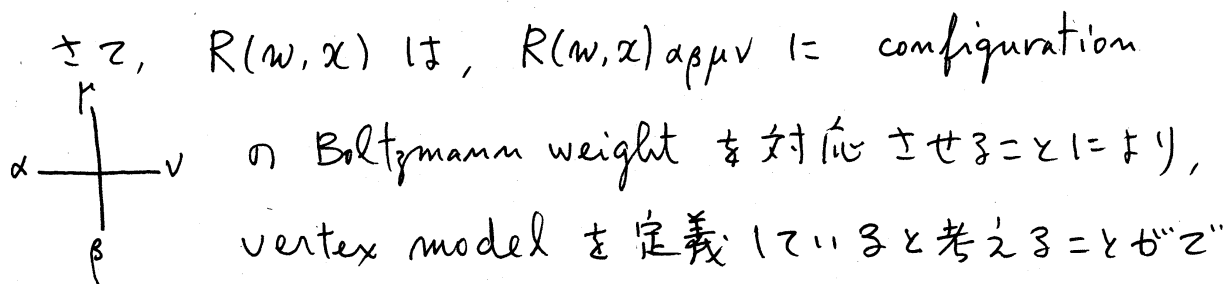 さて, R(w,x) は, R(w,x)αβμν に configuration
μ
α ν の Boltzmann weight を対応させることにより,
β vertex model を定義していると考えることがで